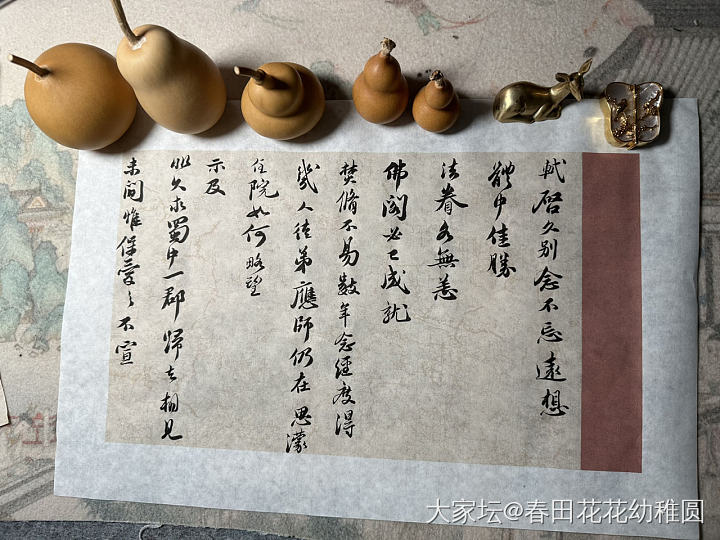 軾啓久别念不忘遠想
體中佳勝
法眷各無恙
佛閣必已成就
焚脩不易數年念經度得
幾人徒弟應師仍在思濛
住院如何略望
示及
此久求蜀中一郡歸去相見
未間惟保愛之不宣
大家坛@春田花花幼稚圆